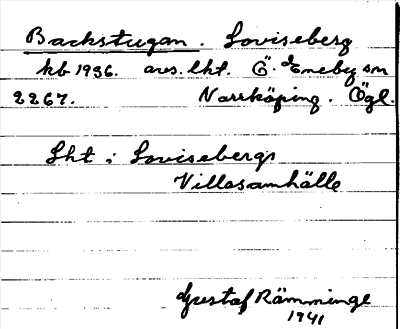 Backstugan. Loviseberg
kb 1936. avs. lht. Ö. Eneby sn
2267. Norrköping. Ögl.
Lht i Lovisebergs
Villasamhälle
Gustaf Rämminge
1941